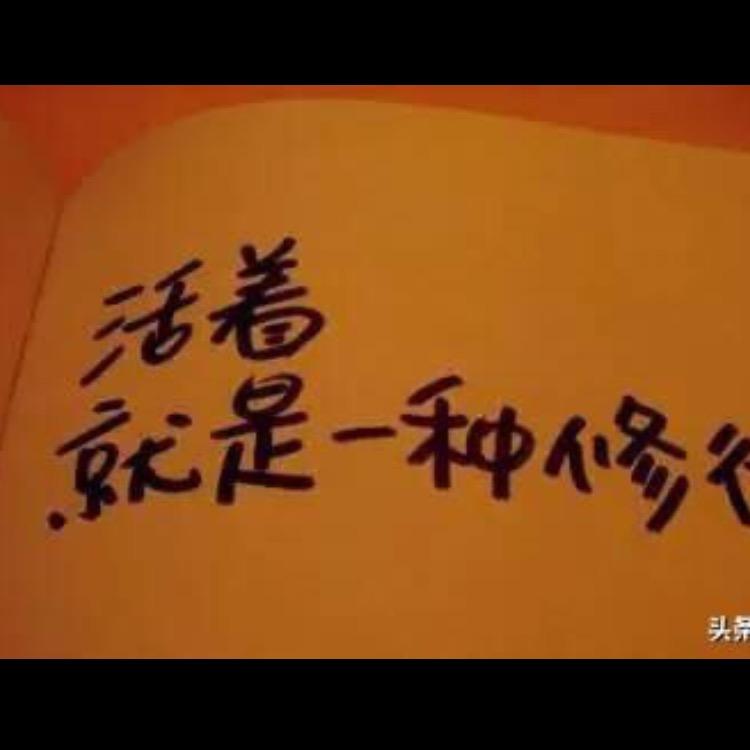 活着
就是一种修
头条